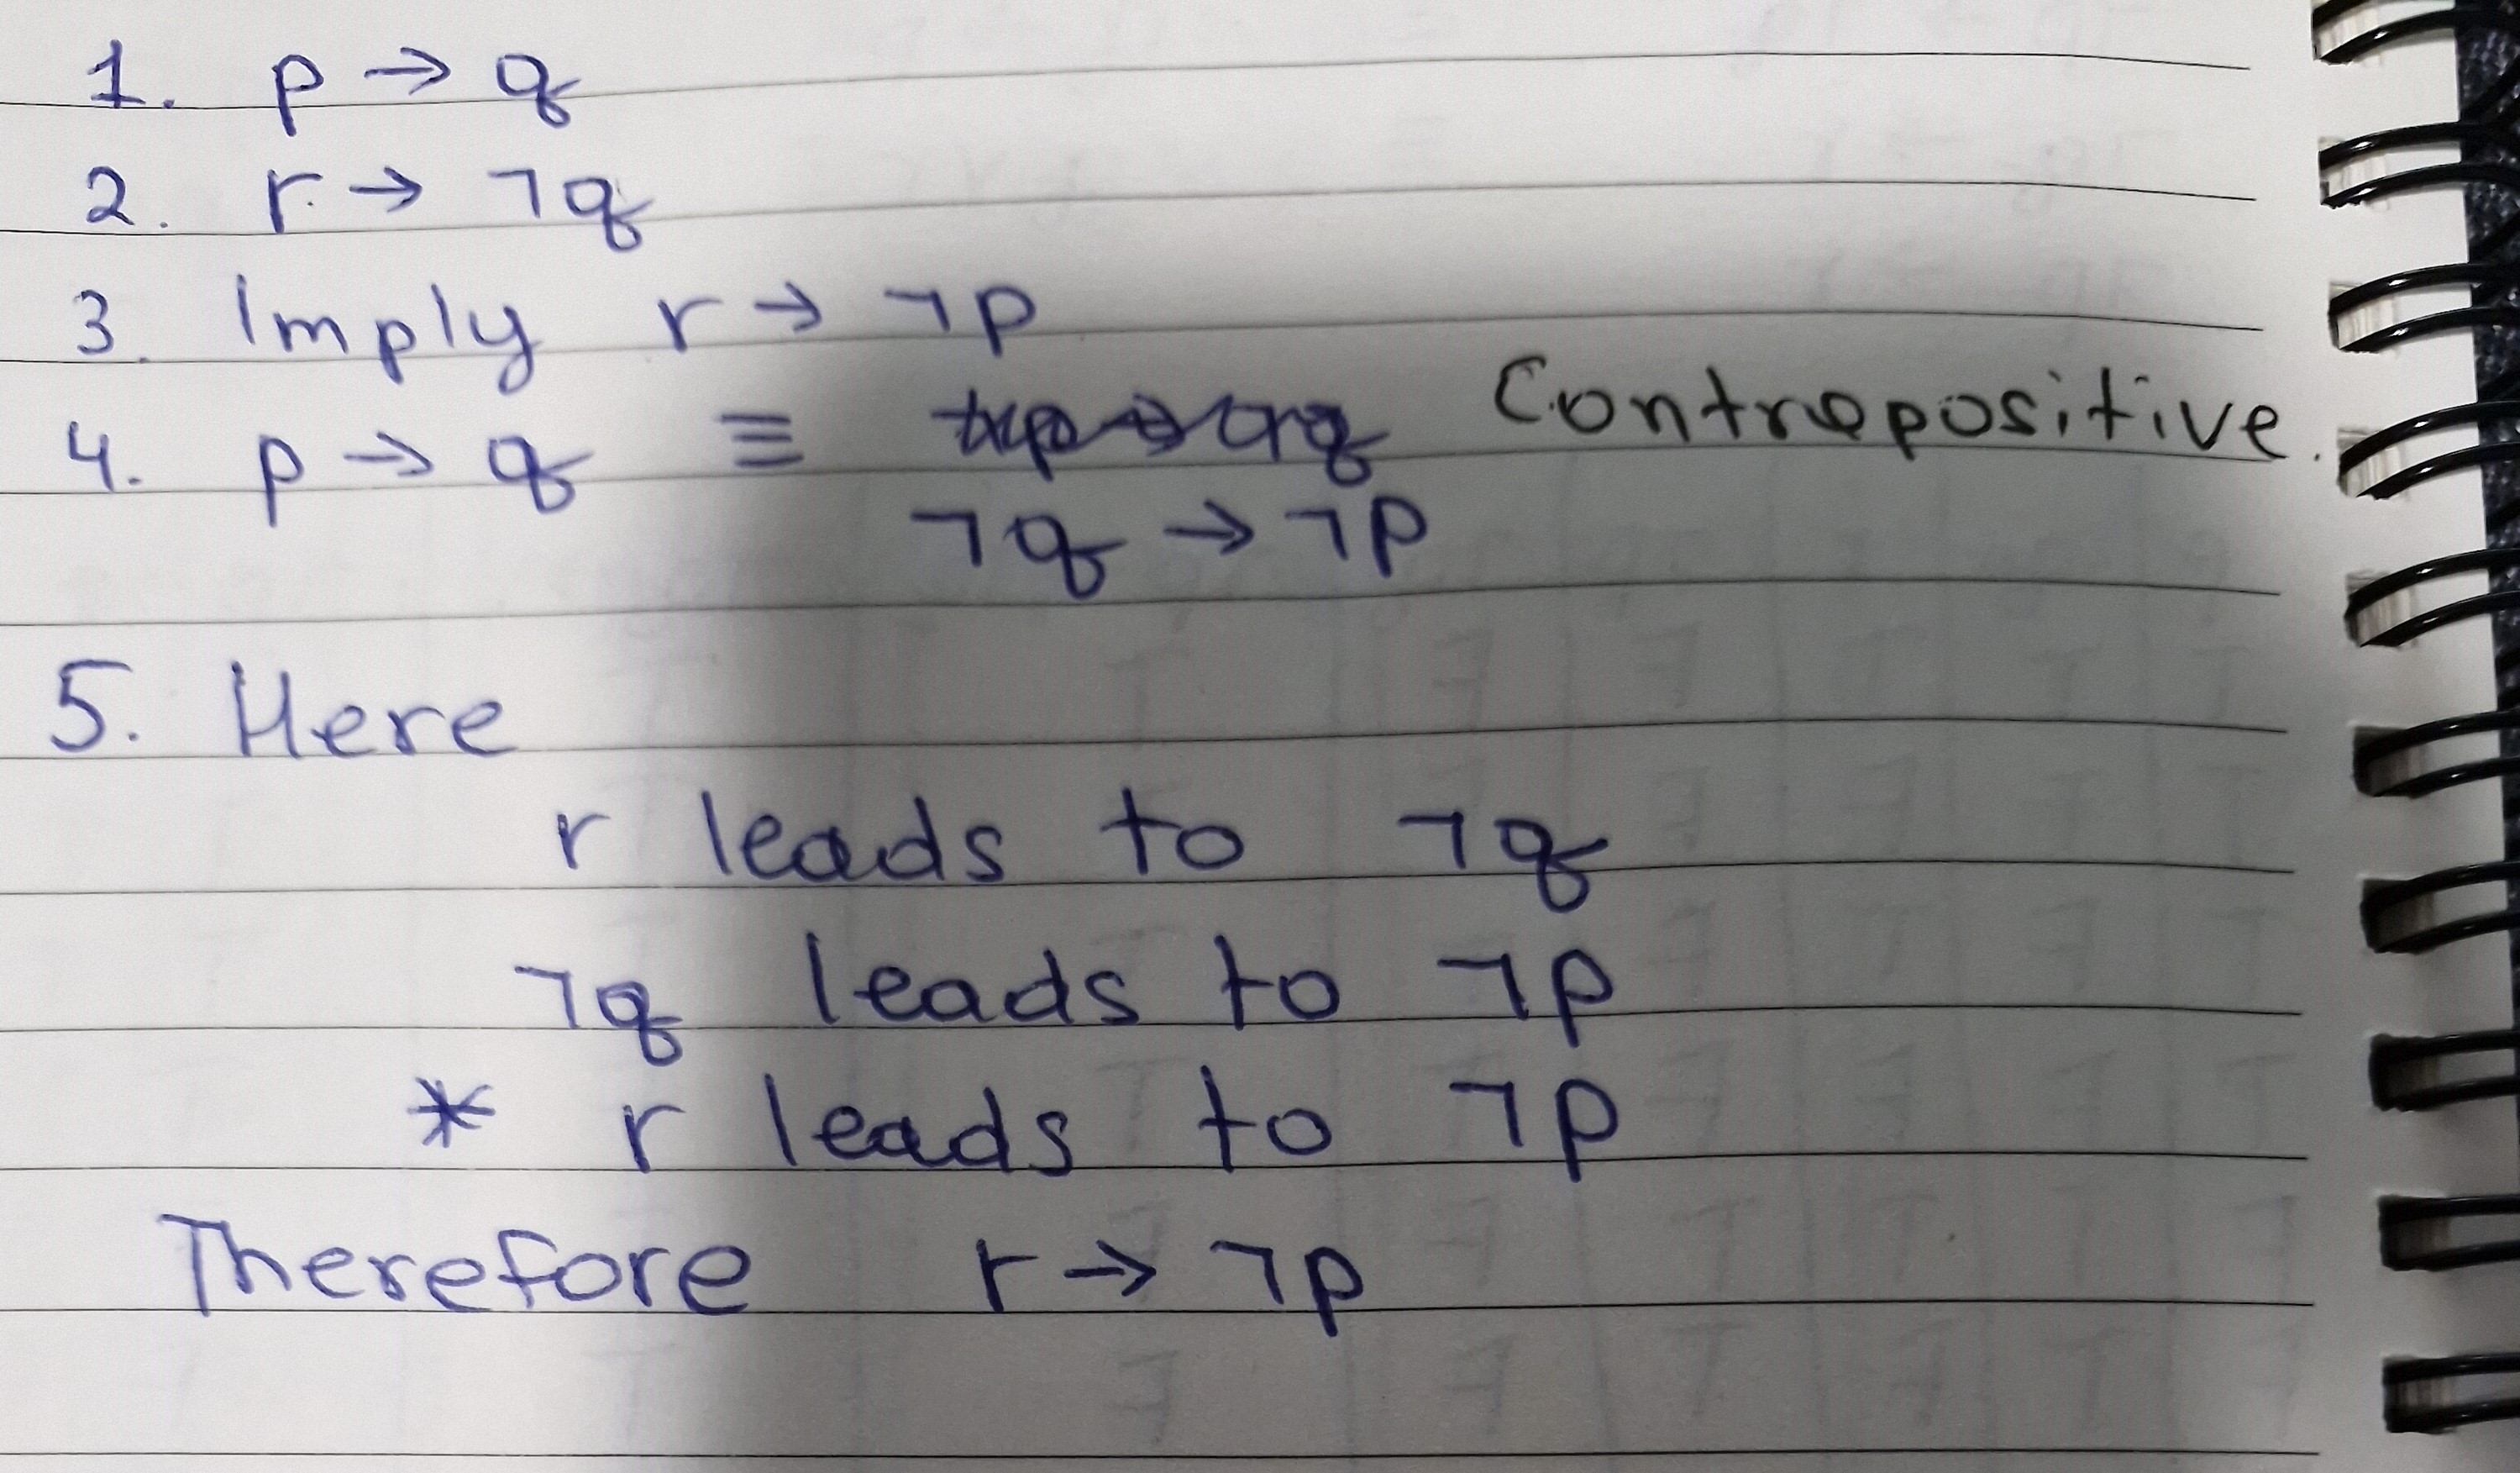 1. p → q
2. r → ¬q
3. Imply r → ¬p
4. p → q ≡ Contrapositive.
¬q → ¬p
5. Here
r leads to ¬q
¬q leads to ¬p
* r leads to ¬p
Therefore r → ¬p